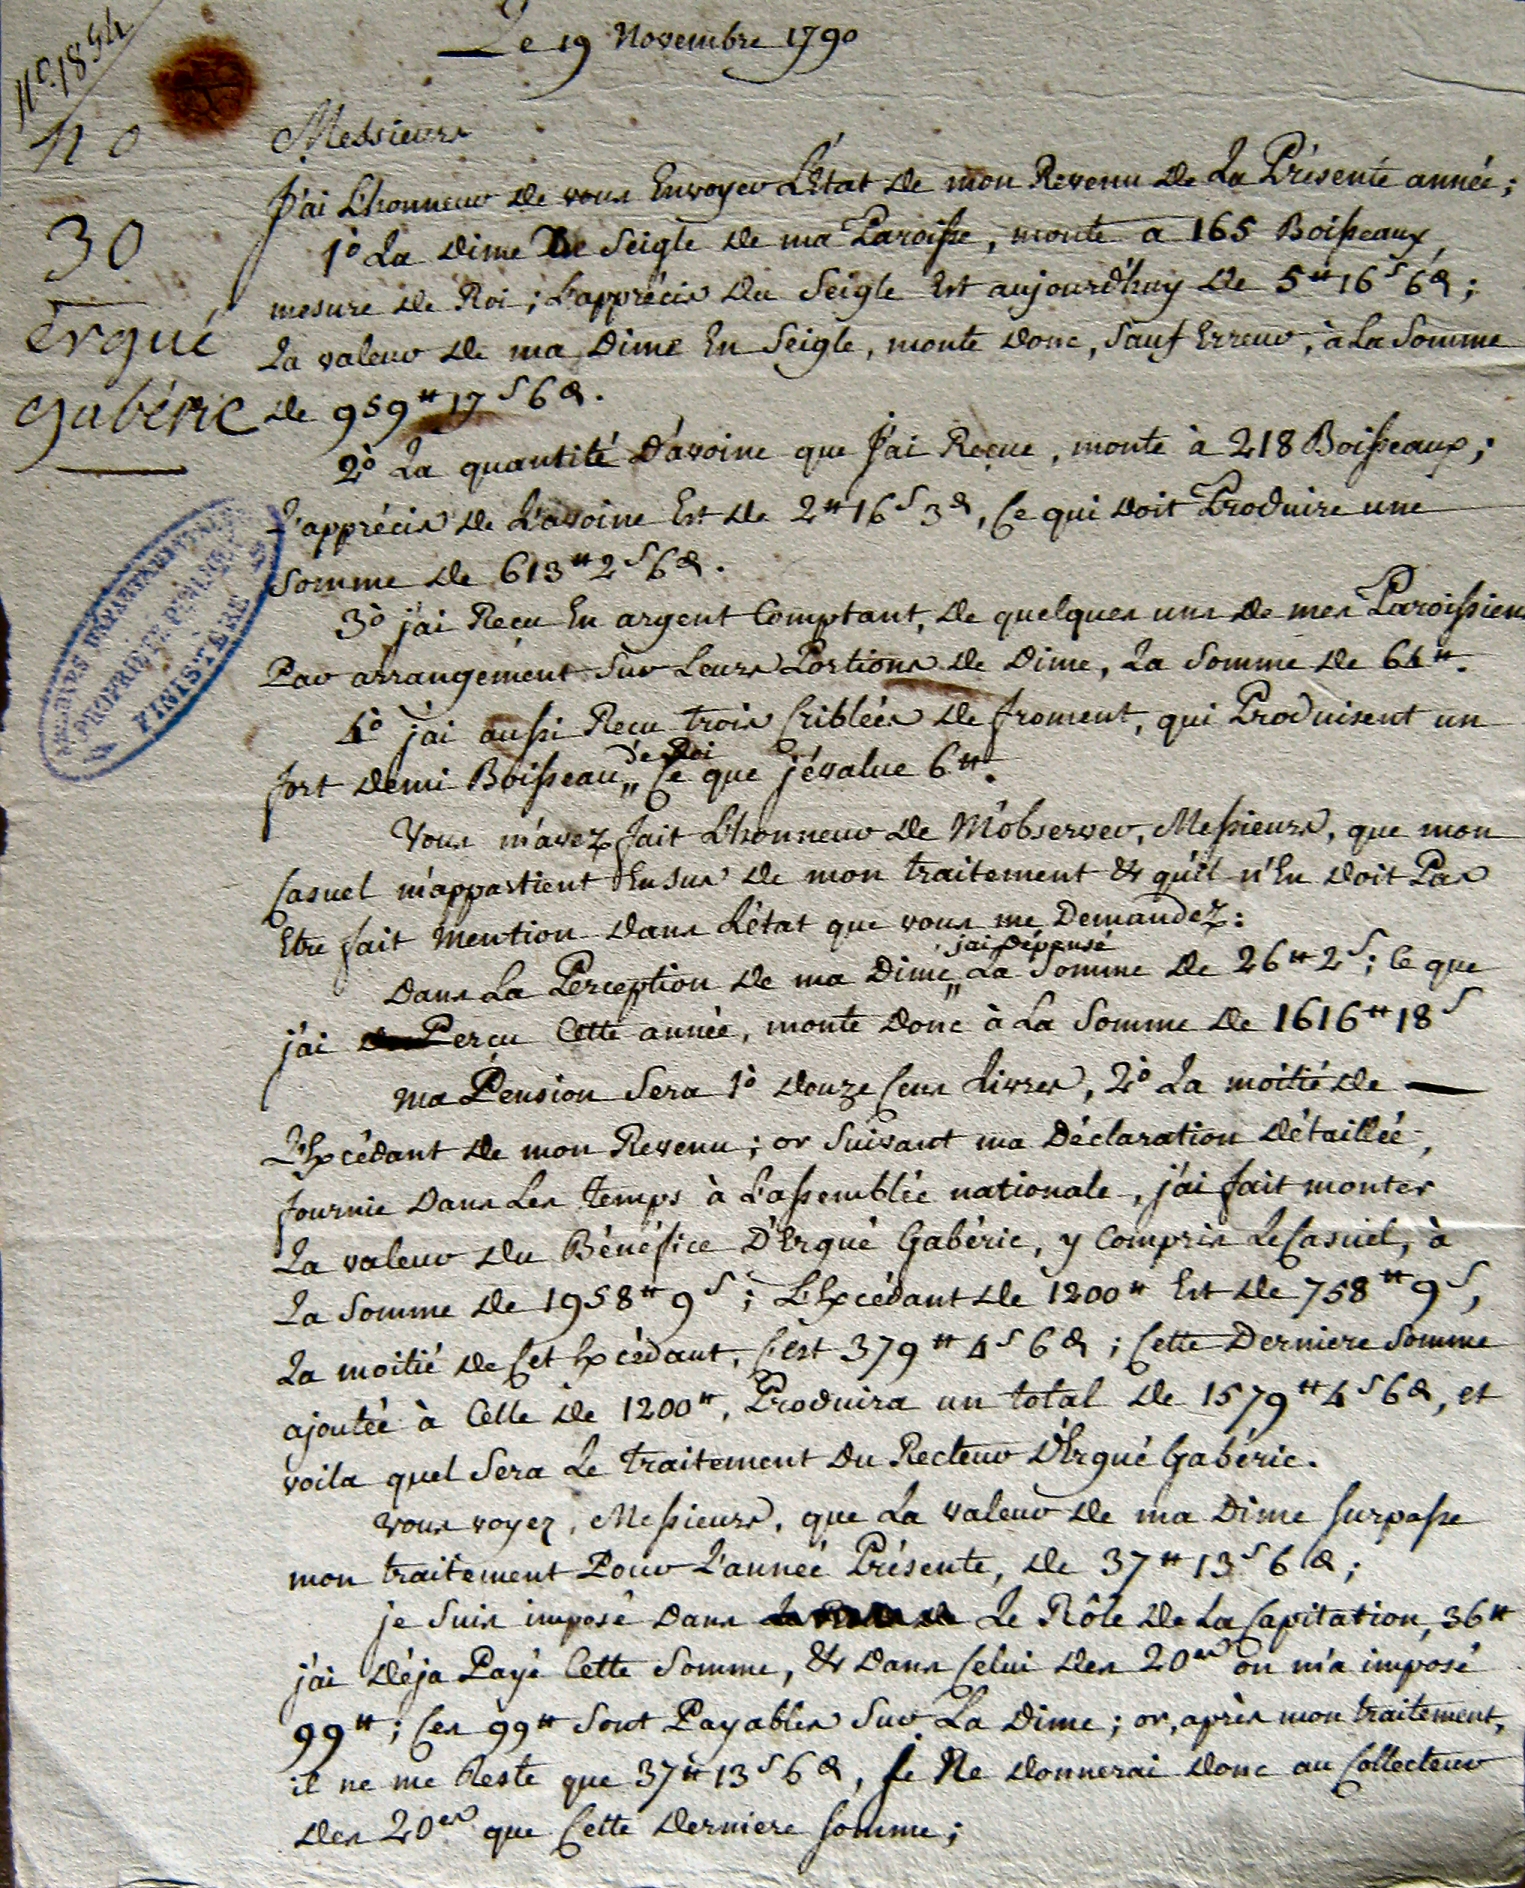 Le 19 Novembre 1790
N°. 1854
n o
30
Ergué
gabéric
ARCHIVES DÉPARTEMENTALES
PROPRIÉTÉ PUBLIQUE
FINISTÈRE
Messieurs
J'ai L'honneur de vous Envoyer L'État de mon Revenu de La Présente année;
1° La dime De Seigle de ma Paroisse, monte a 165 Boisseaux,
mesure de Roi; L'apprécis du Seigle Est aujourd'huy de 5tt 16s 6d;
La valeur de ma Dime En Seigle, monte donc, Sauf Erreur, à La Somme
de 959tt 17s 6d.
2° La quantité D'avoine que J'ai Reçue, monte à 218 Boisseaux;
L'apprécis de L'avoine Est de 2tt 16s 3d, Ce qui doit Produire une
Somme de 613tt 2s 6d.
3° j'ai Reçu En argent Comptant, de quelques uns de mes Paroissiens
Par arrangement Sur Leurs Portions de Dime, La Somme de 64tt.
4° j'ai aussi Reçu trois Criblées de froment, qui Produisent un
de Roi
fort demi Boisseau,, Ce que j'évalue 6tt.
Vous m'avez fait L'honneur de M'observer, Messieurs, que mon
Casuel m'appartient En Sus de mon traitement & qu'il n'En doit Pas
Etre fait Mention dans L'état que vous me Demandez:
j'ai Dépensé
Dans La Perception de ma Dime,, La Somme de 26tt 2s; Ce que
j'ai Perçu Cette année, monte donc à La Somme de 1616tt 18s
Ma Pension Sera 1° douze Cens Livres, 2° La moitié de
L'Excédant de mon Revenu; or Suivant ma Déclaration détaillée,
fournie dans Les temps à L'assemblée nationale, j'ai fait monter
La valeur du Bénéfice D'Ergué Gabéric, y Compris Le Casuel, à
La Somme de 1958tt 9s; L'Excédant de 1200tt Est de 758tt 9s,
La moitié de Cet Excédant, C'est 379tt 4s 6d; Cette Derniere Somme
ajoutée à Celle de 1200tt, Produira un total de 1579tt 4s 6d, et
voila quel Sera Le traitement du Recteur D'Ergué Gabéric.
Vous voyez, Messieurs, que La valeur de ma Dime Surpasse
mon traitement Pour L'année Présente, de 37tt 13s 6d;
je Suis imposé dans Le Rôle de La Capitation, 36tt
j'ai déja Payé Cette Somme, & dans Celui des 20es on m'a imposé
99tt; Ces 99tt Sont Payables Sur La Dime; or, après mon traitement,
il ne me Reste que 37tt 13s 6d, Je Ne donnerai donc au Collecteur
des 20es que Cette derniere Somme;